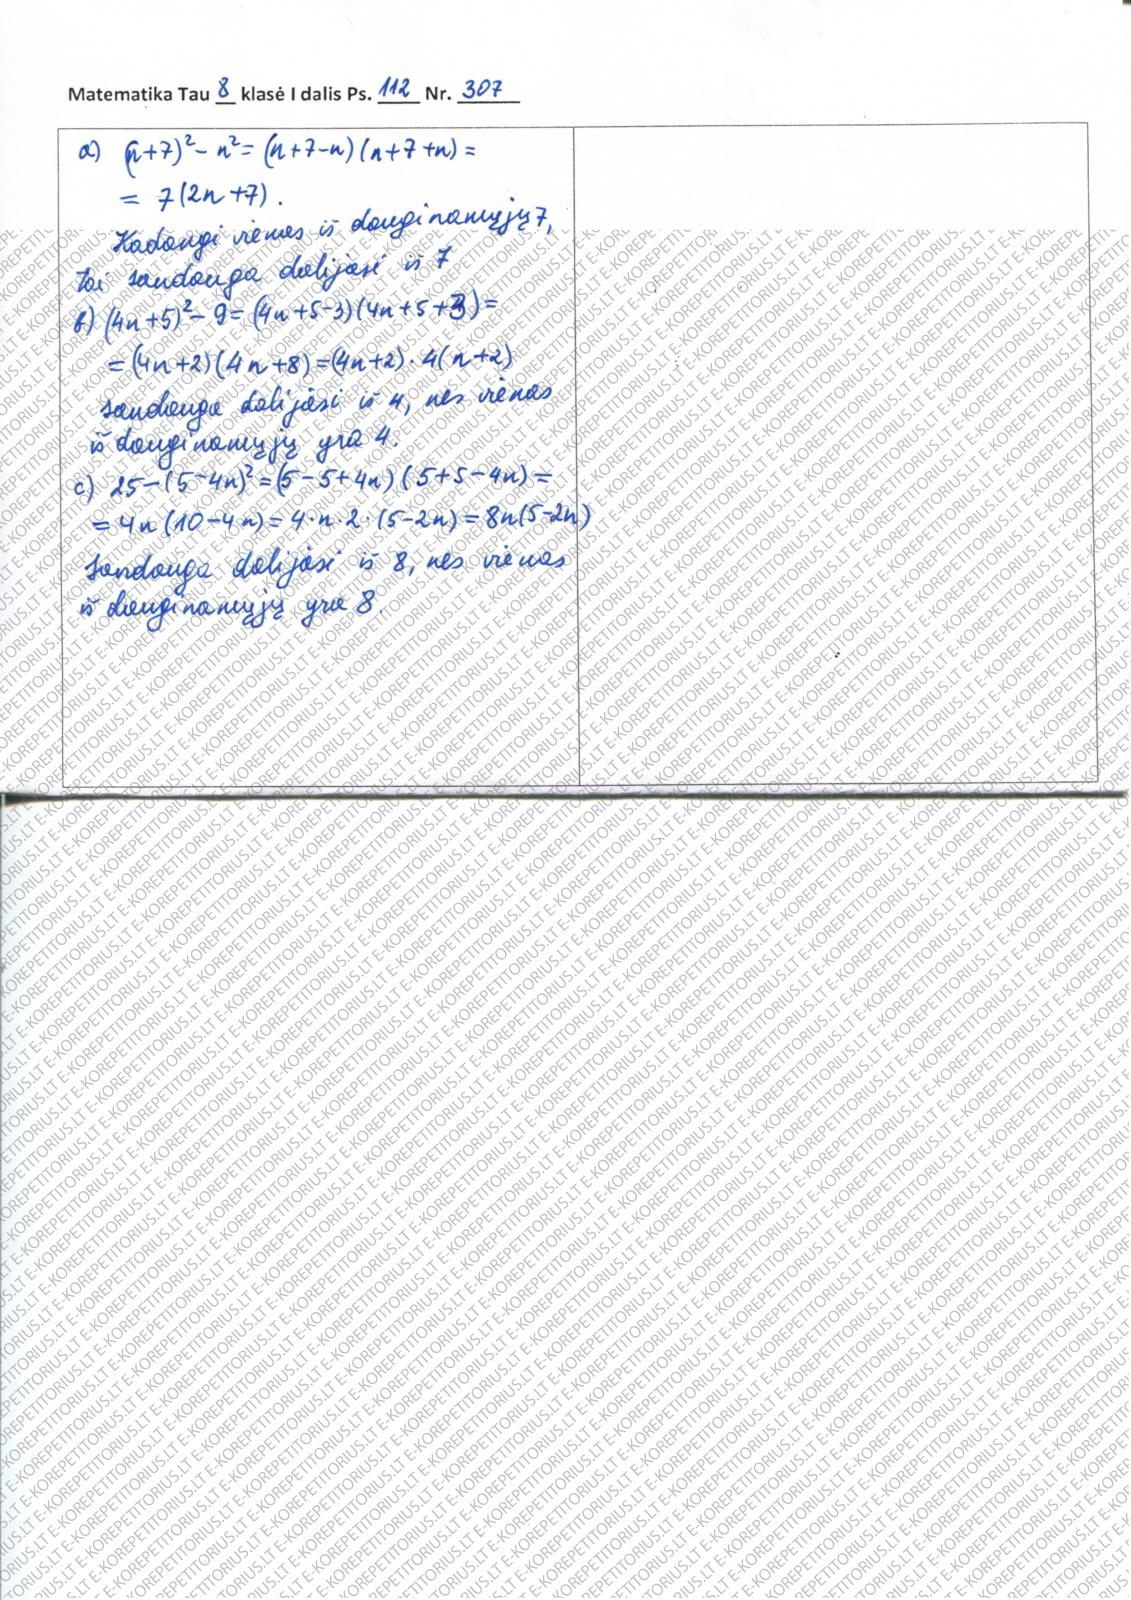 Matematika Tau 8 klasė I dalis Ps. 112 Nr. 307
a) (n+7)² - n² = (n+7-n)(n+7+n) =
= 7(2n+7).
Kadangi vienas iš dauginamųjų 7,
tai sandauga dalijasi iš 7
b) (4n+5)² - 9 = (4n+5-3)(4n+5+3) =
= (4n+2)(4n+8) = (4n+2)·4(n+2)
sandauga dalijasi iš 4, nes vienas
iš dauginamųjų yra 4.
c) 25-(5-4n)² = (5-5+4n)(5+5-4n) =
= 4n(10-4n) = 4·n·2·(5-2n) = 8n(5-2n)
Sandauga dalijasi iš 8, nes vienas
iš dauginamųjų yra 8.
E-KOREPETITORIUS.LT